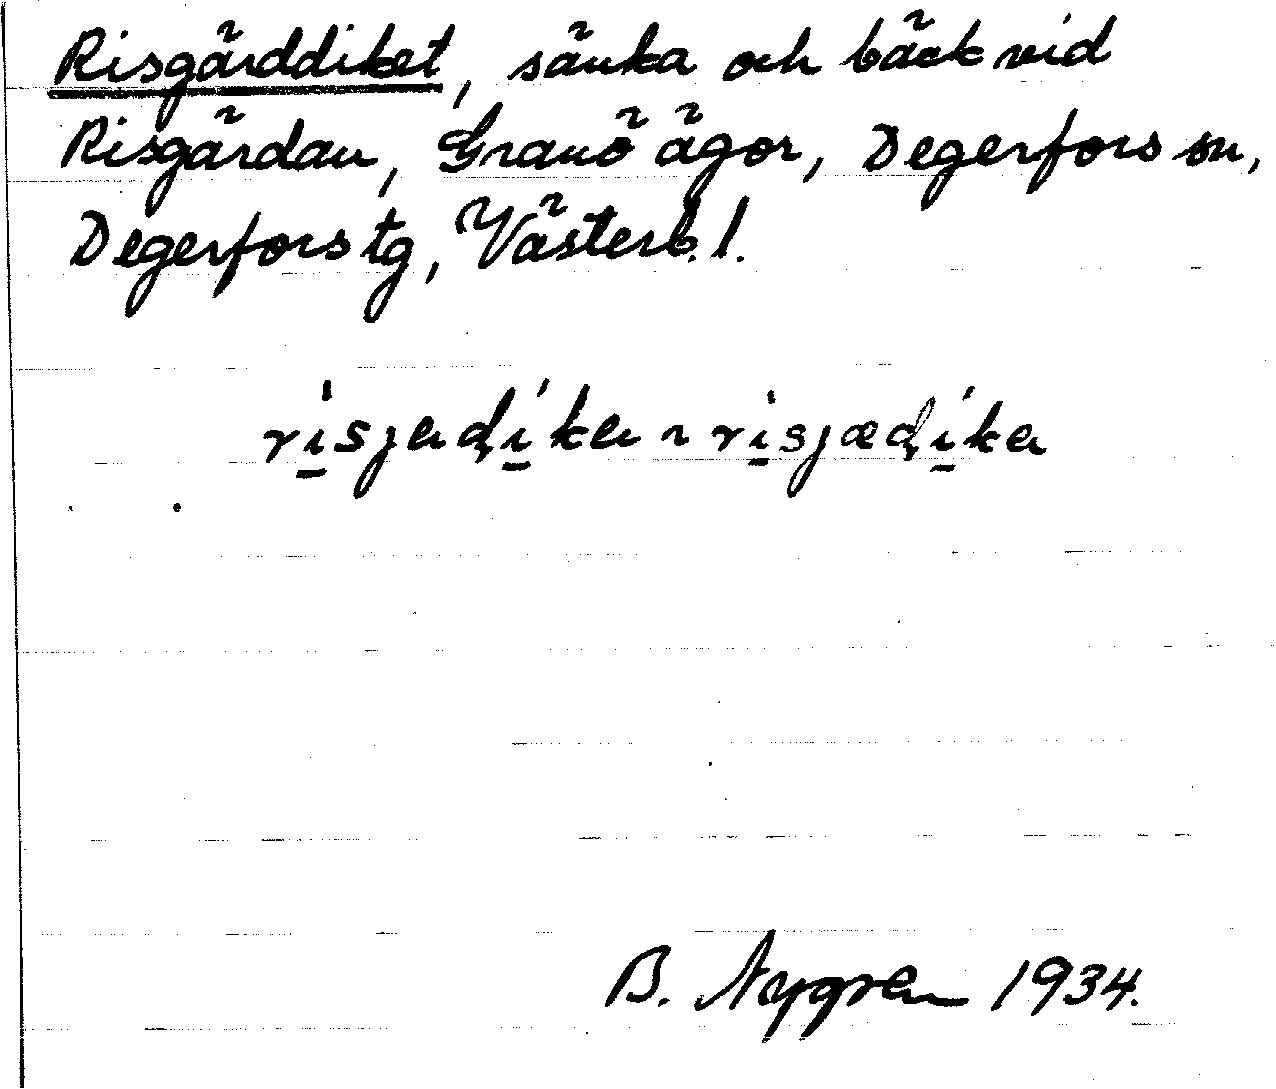 Risgärddiket, sänka och bäck vid
Risgärdan, Granö ägor, Degerfors sn,
Degerfors tg, Västerb. l.
risjadi̱ka ~ risjædi̱ka
B. Nygren 1934.